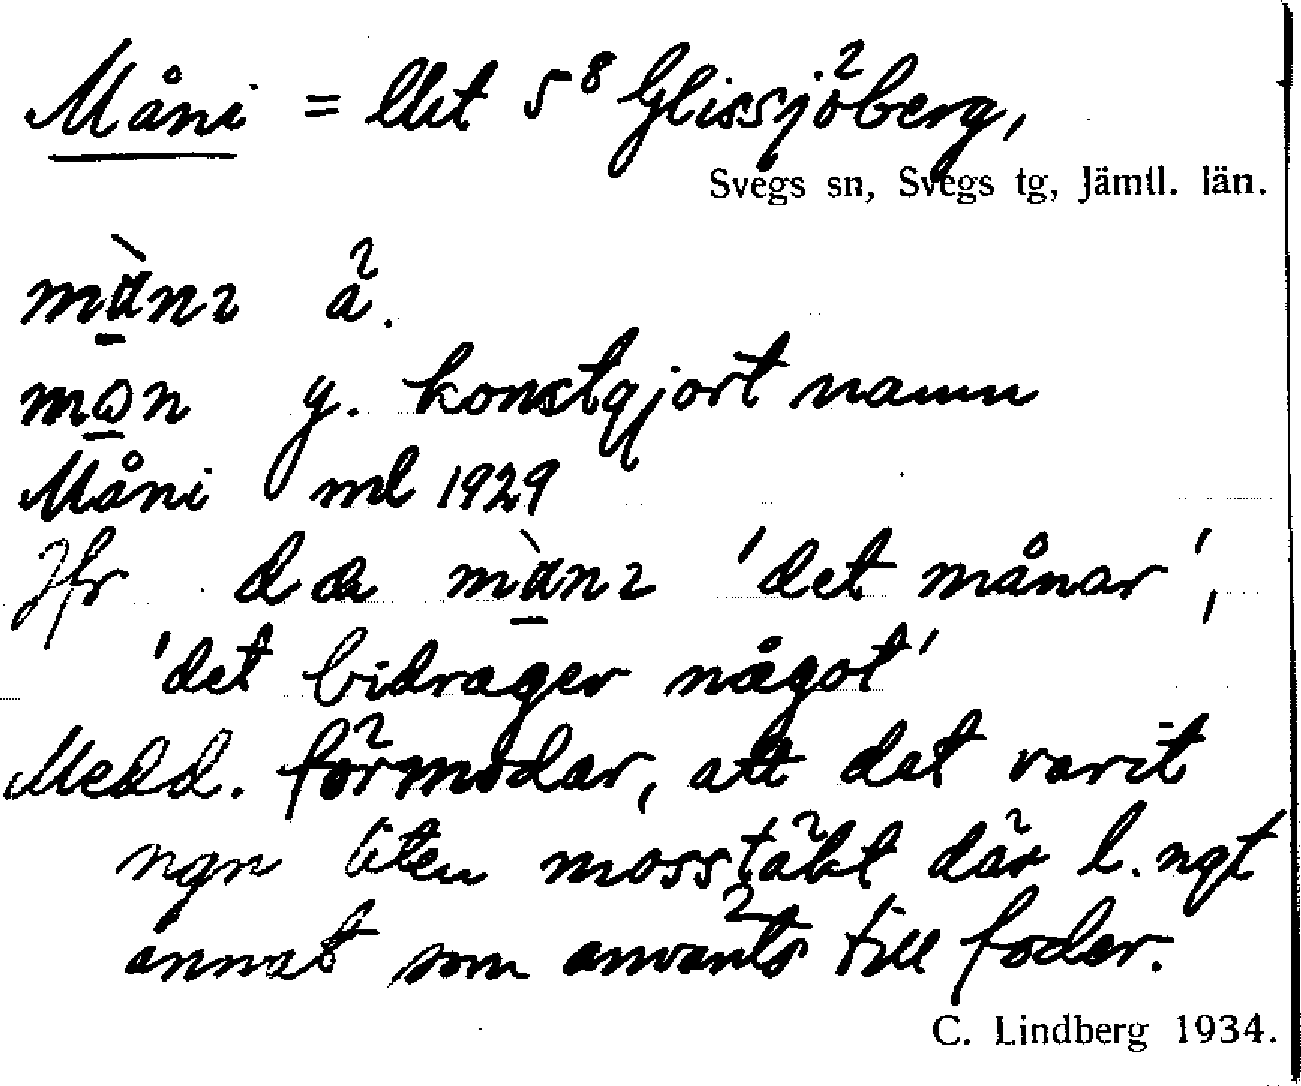 Måni = llet 5⁸ Glissjöberg,
Svegs sn, Svegs tg, Jämtl. län.
mànɩ ä.
mɷn y. konstgjort namn
Måni ml 1929
Jfr dæ mànɩ 'det månar',
'det bidrager något'
Medd. förmodar, att det varit
ngn liten mosstäkt där l. ngt
annat som använts till foder.
C. Lindberg 1934.